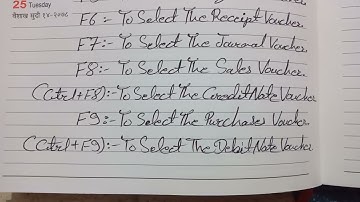 25 Tuesday
वैशाख सुदी १४-२०७८
F6 :- To Select The Receipt Voucher
F7 :- To Select The Journal Voucher.
F8:- To Select The Sales Voucher.
(Ctrl+F8):- To Select The Creadit Note Voucher
F9:- To Select The Purchases Voucher
(Ctrl+F9):- To Select The Debit Note Voucher